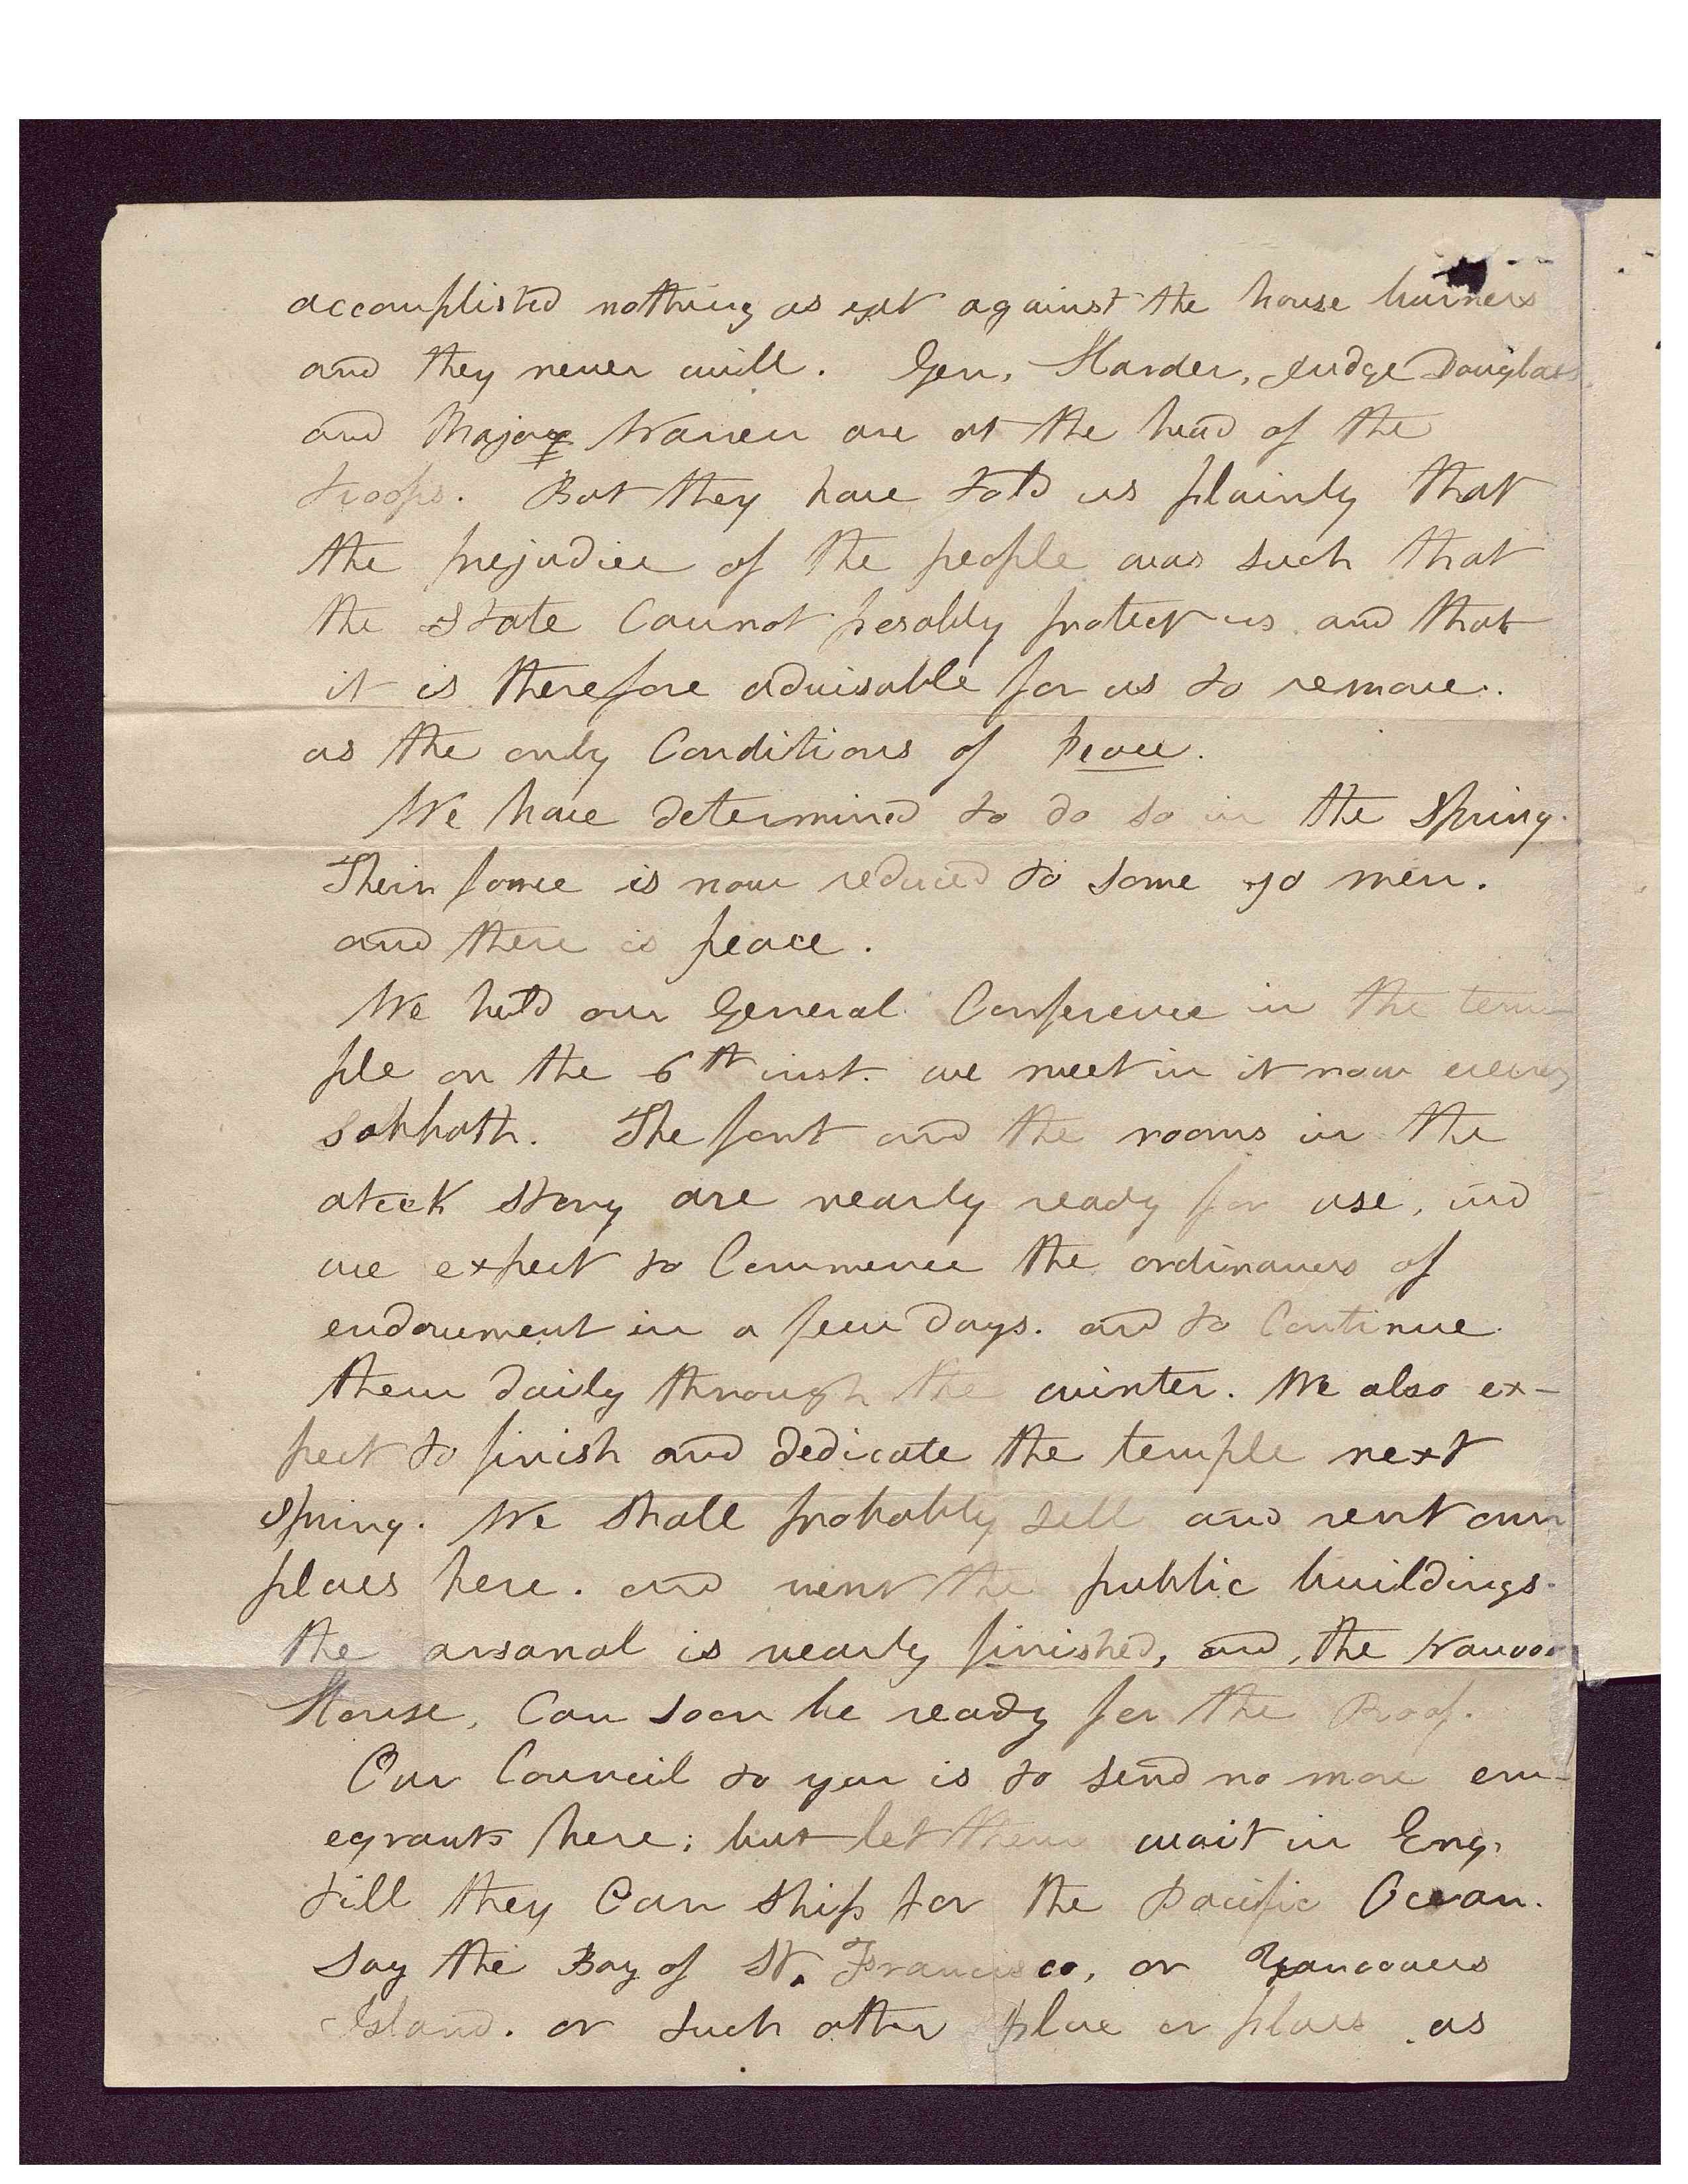 accomplished nothing as yet against the house burners
and they never will. Gen, Harden, Judge Douglass
and Major Warren are at the head of the
troops. But they have told us plainly that
the prejudice of the people was such that
the state Cannot posably protect us and that
it is therefore advisable for us to remove.
as the only Conditions of peace.
We have determined to do so in the Spring.
Their force is now reduced to some 50 men.
and there is peace.
We held our General Conference in the tem-
ple on the 6th inst. we meet in it now every
sabbath. The font and the rooms in the
atick story are nearly ready for use, and
we expect to Commence the ordinances of
endowment in a few days. and to Continue
them daily through the winter. We also ex-
pect to finish and dedicate the temple next
spring. We shall probably sell and rent our
places here. and rent the public buildings.
the arsanal is nearly finished, and, the Nauvoo
House, Can soon be ready for the Roof.
Our Council to you is to send no more em-
egrants here; but let them wait in Eng,
till they Can ship for the Pacific Ocean.
Say the Bay of St. Francisco, or Vancouvers
Island. or such other place or places as